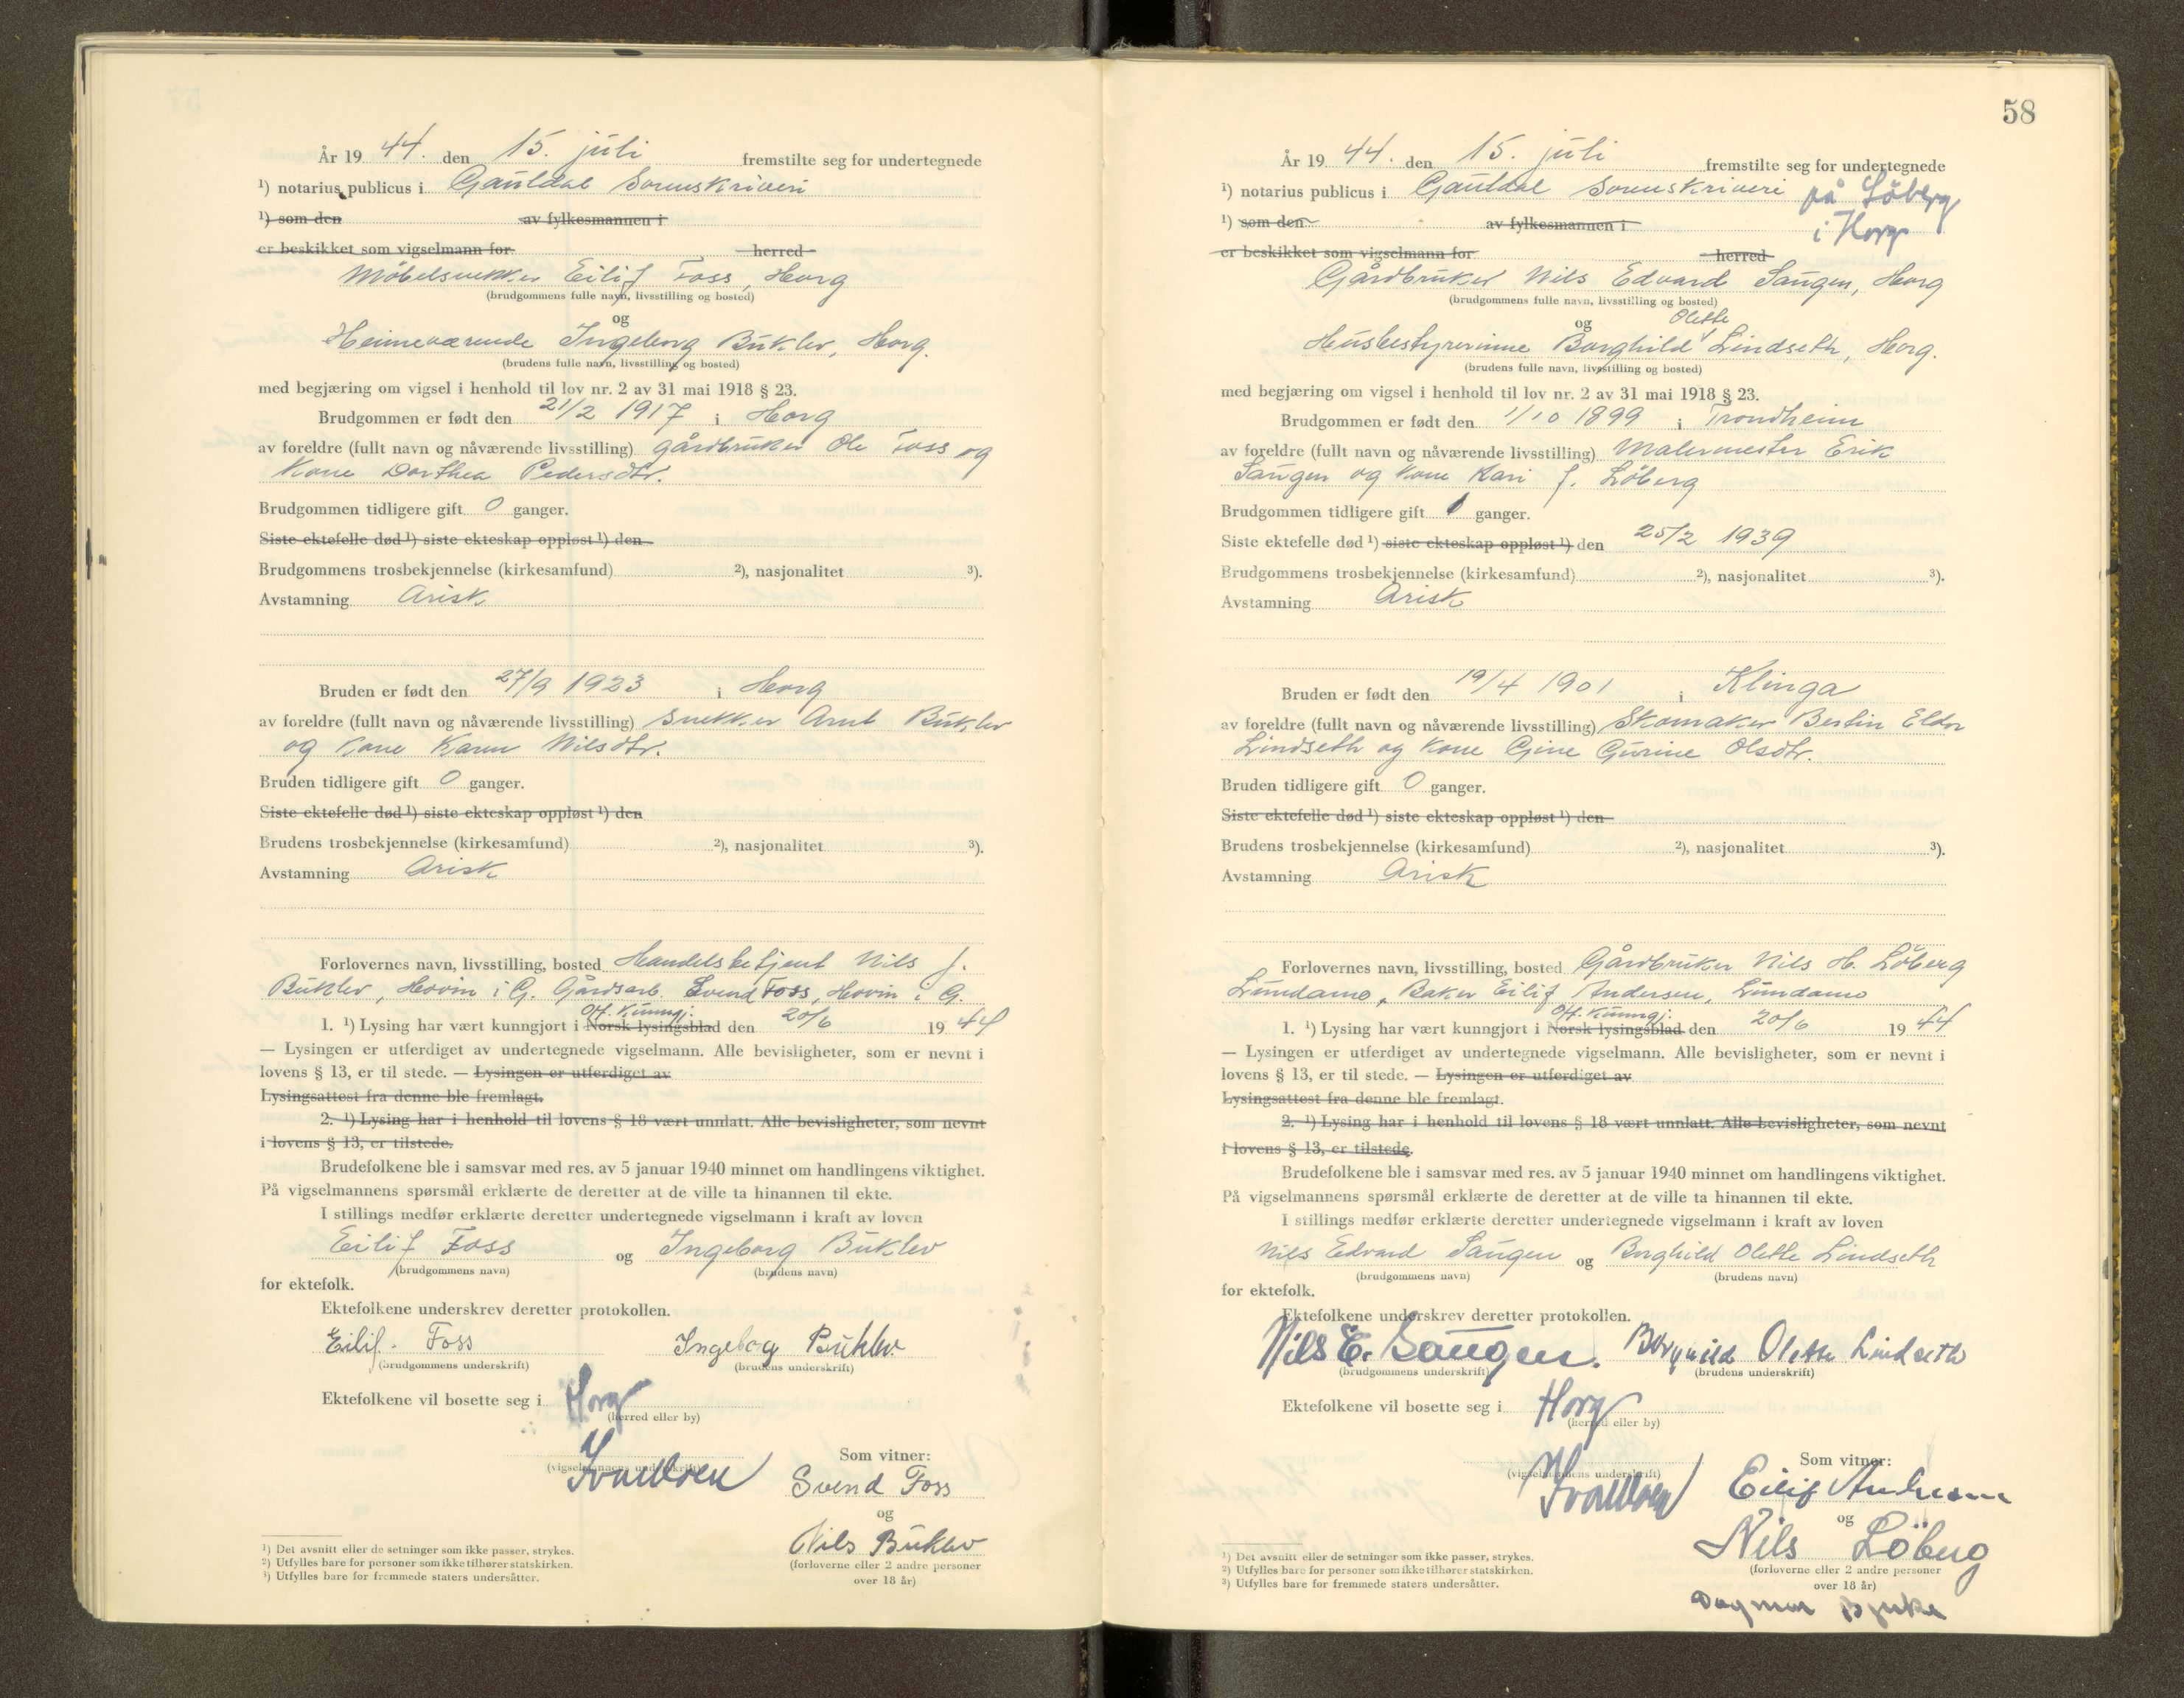 År 19 44. den 15. juli fremstilte seg for undertegnede
¹) notarius publicus i Gauldal Sorenskriveri
¹) som den av fylkesmannen i
er beskikket som vigselmann for herred
Møbelsnekker Eilif Foss, Horg
(brudgommens fulle navn, livsstilling og bosted)
og
Heimeværende Ingeborg Buklev, Horg.
(brudens fulle navn, livsstilling og bosted)
med begjæring om vigsel i henhold til lov nr. 2 av 31 mai 1918 § 23.
Brudgommen er født den 21/2 1917 i Horg
av foreldre (fullt navn og nåværende livsstilling) gårdbruker Ole Foss og
Kone Dorthea Pedersdtr.
Brudgommen tidligere gift 0 ganger.
Siste ektefelle død ¹) siste ekteskap oppløst ¹) den
Brudgommens trosbekjennelse (kirkesamfund) ²), nasjonalitet ³).
Avstamning Arisk
Bruden er født den 27/9 1923 i Horg
av foreldre (fullt navn og nåværende livsstilling) Snekker Arnt Buklev
og Kone Karen Nilsdtr.
Bruden tidligere gift 0 ganger.
Siste ektefelle død ¹) siste ekteskap oppløst ¹) den
Brudens trosbekjennelse (kirkesamfund) ²), nasjonalitet ³).
Avstamning Arisk
Forlovernes navn, livsstilling, bosted Handelsbetjent Nils J.
Buklev, Hovin i G. Gårdsarb. Svend Foss, Hovin i G.
Off. Kunngj.
1. ¹) Lysing har vært kunngjort i Norsk lysingsblad den 20/6 19 44
— Lysingen er utferdiget av undertegnede vigselmann. Alle bevisligheter, som er nevnt i
lovens § 13, er til stede. — Lysingen er utferdiget av
Lysingsattest fra denne ble fremlagt.
2. ¹) Lysing har i henhold til lovens § 18 vært unnlatt. Alle bevisligheter, som nevnt
i lovens § 13, er tilstede.
Brudefolkene ble i samsvar med res. av 5 januar 1940 minnet om handlingens viktighet.
På vigselmannens spørsmål erklærte de deretter at de ville ta hinannen til ekte.
I stillings medfør erklærte deretter undertegnede vigselmann i kraft av loven
Eilif Foss og Ingeborg Buklev
(brudgommens navn) (brudens navn)
for ektefolk.
Ektefolkene underskrev deretter protokollen.
Eilif. Foss Ingeborg Buklev
(brudgommens underskrift) (brudens underskrift)
Ektefolkene vil bosette seg i Horg
(herred eller by)
Som vitner:
(vigselmannens underskrift)
Svend Foss
og
Nils Buklev
(forloverne eller 2 andre personer
over 18 år)
¹) Det avsnitt eller de setninger som ikke passer, strykes.
²) Utfylles bare for personer som ikke tilhører statskirken.
³) Utfylles bare for fremmede staters undersåtter.
58
År 19 44. den 15. juli fremstilte seg for undertegnede
¹) notarius publicus i Gauldal Sorenskriveri på Löberg
i Horg
¹) som den av fylkesmannen i
er beskikket som vigselmann for herred
Gårdbruker Nils Edvard Saugen, Horg
(brudgommens fulle navn, livsstilling og bosted)
og Olette
Husbestyrerinne Borghild Lindseth, Horg.
(brudens fulle navn, livsstilling og bosted)
med begjæring om vigsel i henhold til lov nr. 2 av 31 mai 1918 § 23.
Brudgommen er født den 1/10 1899 i Trondheim
av foreldre (fullt navn og nåværende livsstilling) Malermester Erik
Saugen og Kone Kari J. Löberg
Brudgommen tidligere gift 1 ganger.
Siste ektefelle død ¹) siste ekteskap oppløst ¹) den 25/2 1939
Brudgommens trosbekjennelse (kirkesamfund) ²), nasjonalitet ³).
Avstamning Arisk
Bruden er født den 19/4 1901 i Klinga
av foreldre (fullt navn og nåværende livsstilling) Skomaker Bertin Eldor
Lindseth og Kone Gine Gurine Olsdtr.
Bruden tidligere gift 0 ganger.
Siste ektefelle død ¹) siste ekteskap oppløst ¹) den
Brudens trosbekjennelse (kirkesamfund) ²), nasjonalitet ³).
Avstamning Arisk
Forlovernes navn, livsstilling, bosted Gårdbruker Nils H. Löberg
Lundamo, Baker Eilif Andersen, Lundamo
Off. Kunngj.
1. ¹) Lysing har vært kunngjort i Norsk lysingsblad den 20/6 19 44
— Lysingen er utferdiget av undertegnede vigselmann. Alle bevisligheter, som er nevnt i
lovens § 13, er til stede. — Lysingen er utferdiget av
Lysingsattest fra denne ble fremlagt.
2. ¹) Lysing har i henhold til lovens § 18 vært unnlatt. Alle bevisligheter, som nevnt
i lovens § 13, er tilstede.
Brudefolkene ble i samsvar med res. av 5 januar 1940 minnet om handlingens viktighet.
På vigselmannens spørsmål erklærte de deretter at de ville ta hinannen til ekte.
I stillings medfør erklærte deretter undertegnede vigselmann i kraft av loven
Nils Edvard Saugen og Borghild Olette Lindseth
(brudgommens navn) (brudens navn)
for ektefolk.
Ektefolkene underskrev deretter protokollen.
Nils E. Saugen. Borghild Olette Lindseth
(brudgommens underskrift) (brudens underskrift)
Ektefolkene vil bosette seg i Horg
(herred eller by)
Som vitner:
(vigselmannens underskrift)
Eilif Andersen
og
Nils Löberg
(forloverne eller 2 andre personer
over 18 år)
Dagmar
¹) Det avsnitt eller de setninger som ikke passer, strykes.
²) Utfylles bare for personer som ikke tilhører statskirken.
³) Utfylles bare for fremmede staters undersåtter.